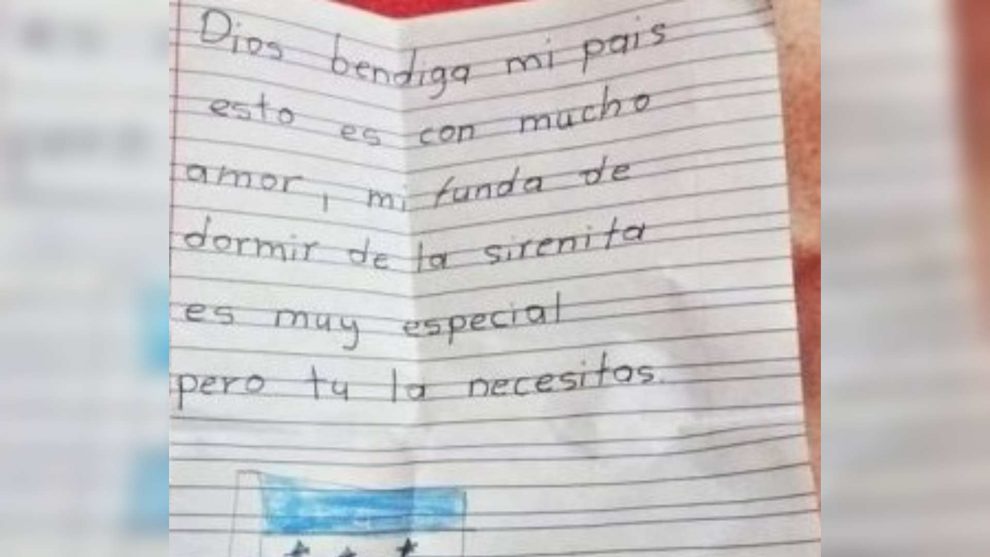 Dios bendiga mi pais
esto es con mucho
amor, mi funda de
dormir de la sirenita
es muy especial
pero tu la necesitas.